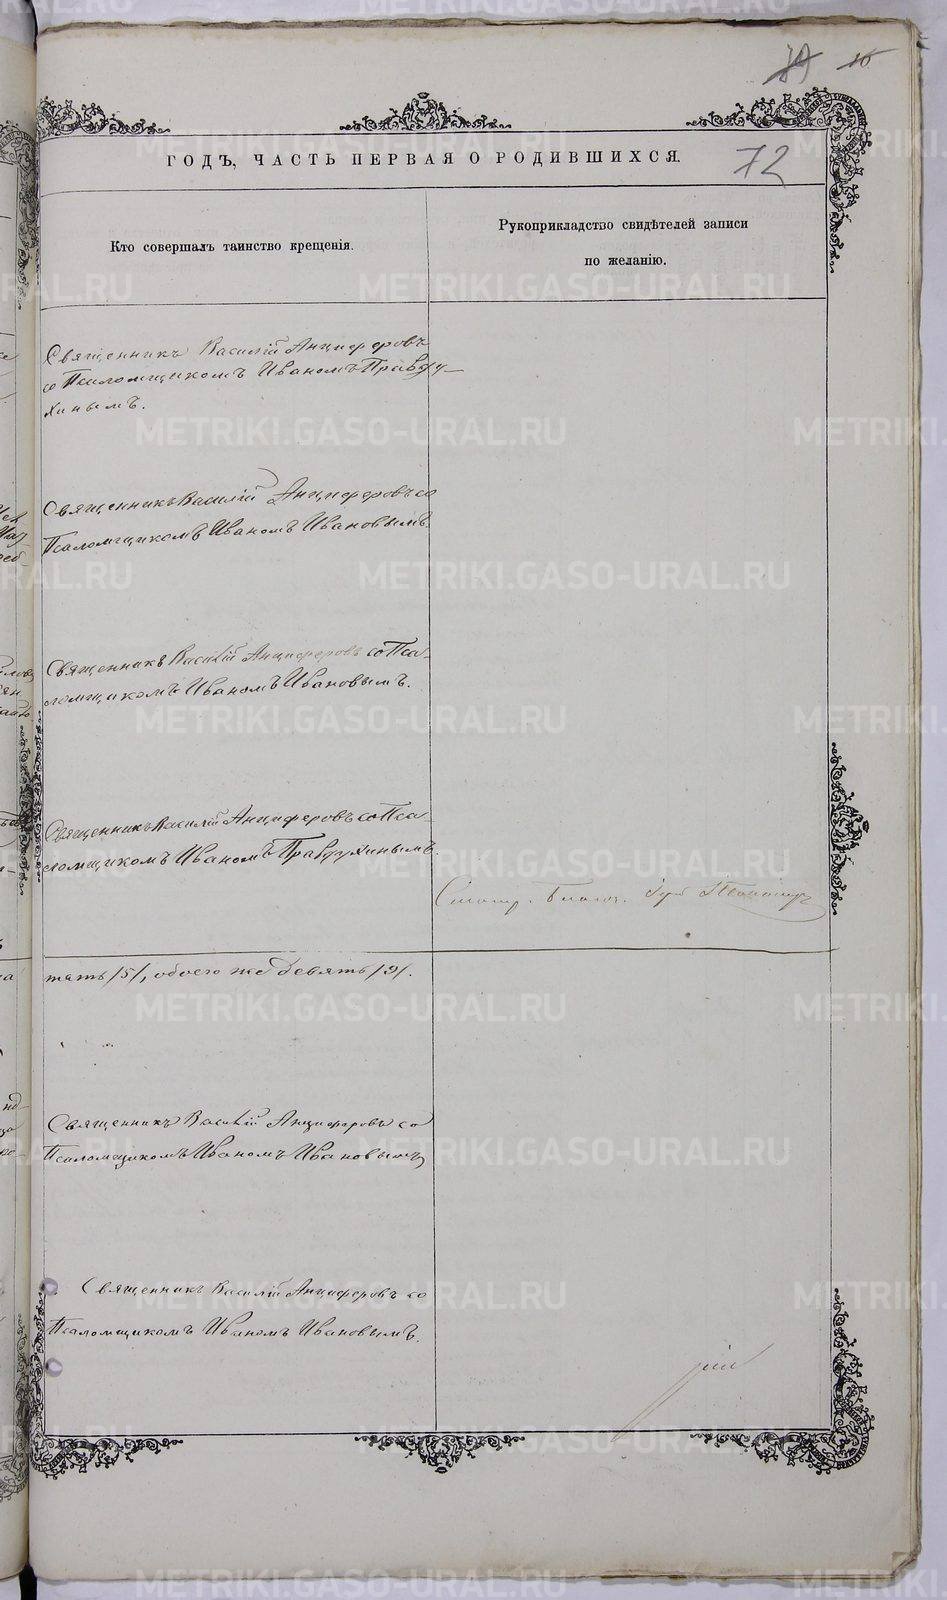 16
ГОДЪ, ЧАСТЬ ПЕРВАЯ О РОДИВШИХСЯ.
72
Кто совершалъ таинство крещенія.
Рукоприкладство свидѣтелей записи
по желанію.
Священникъ Василій Анциферовъ
со Псаломщикомъ Иваномъ Правду-
хинымъ.
Священникъ Василій Анциферовъ со
Псаломщикомъ Иваномъ Ивановымъ.
Священникъ Василій Анциферовъ со Пса-
ломщикомъ Иваномъ Ивановымъ.
Священникъ Василій Анциферовъ со Пса
ломщикомъ Иваномъ Правдухинымъ.
Смотр. Благоч.
тать /5/, обоего же девять /9/.
Священникъ Василій Анциферовъ со
Псаломщикомъ Иваномъ Ивановымъ
Священникъ Василій Анциферовъ со
Псаломщикомъ Иваномъ Ивановымъ.
METRIKI.GASO-URAL.RU